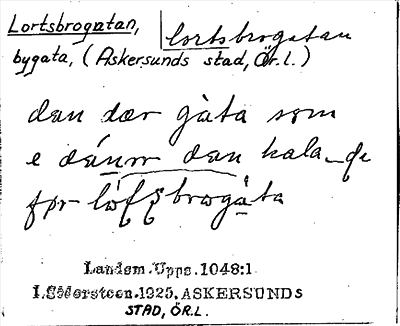 Lortsbrogatan, lortsbrogatan
bygata, (Askersunds stad, Ör.l.)
dæn dær gàta som
e dán den kala
før brogàta
Landsm. Upps. 1048:1
I. Södersteen. 1925. ASKERSUNDS
STAD, ÖR.L.